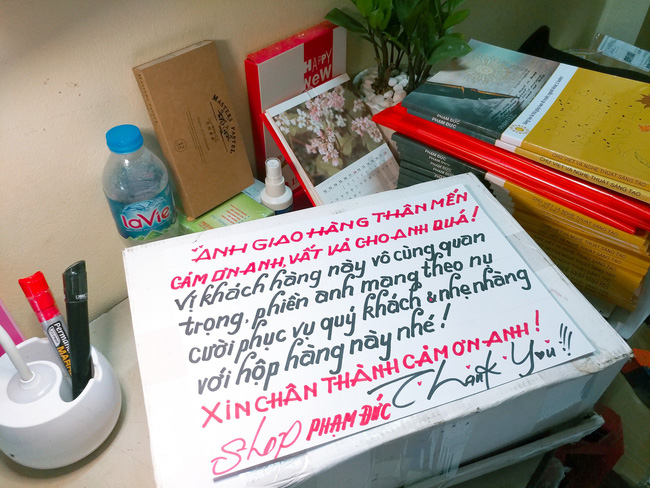 HAPPY
NEW
MASTERS PASTEL
LaVie
PHẠM ĐỨC
PHẠM ĐỨC
CHỮ VIẾT VÀ NGHỆ THUẬT SÁNG TẠO
Permanent
MARKER
ANH GIAO HÀNG THÂN MẾN
CẢM ƠN ANH, VẤT VẢ CHO ANH QUÁ!
Vị khách hàng này vô cùng quan
trọng. phiền anh mang theo nụ
cười phục vụ quý khách & nhẹ nhàng
với hộp hàng này nhé!
XIN CHÂN THÀNH CẢM ƠN ANH!
Shop PHẠM ĐỨC Thank You!!!